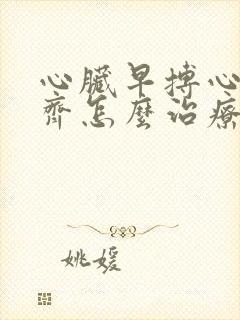 心臟早搏心
齊怎麼治療
姚媛